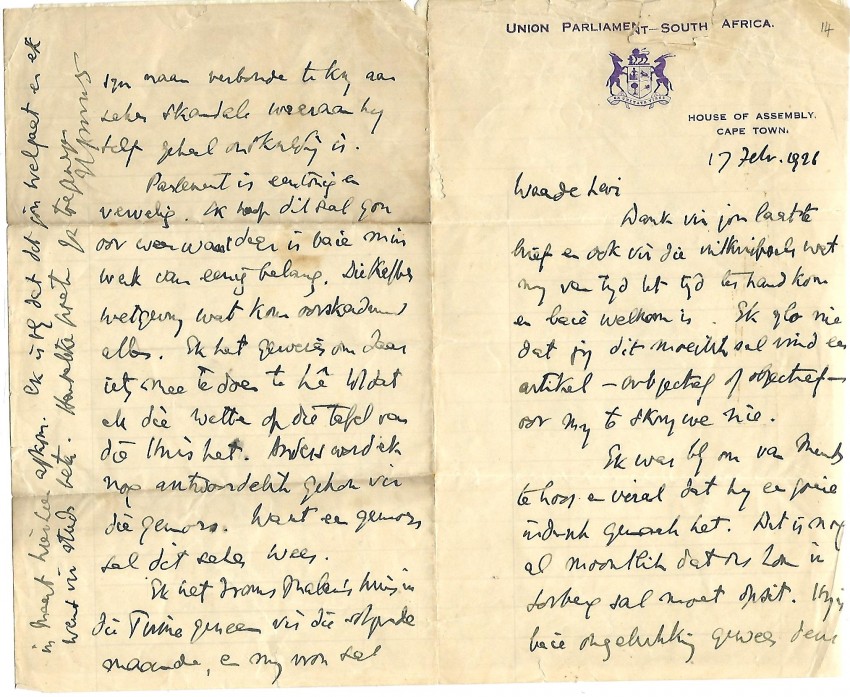 UNION PARLIAMENT—SOUTH AFRICA.
14
HOUSE OF ASSEMBLY.
CAPE TOWN.
17 Febr. 1926
Waarde Levi
Dank vir jou laatste
brief en ook vir die uitknipsels wat
my van tyd tot tyd ter hand kom
en baie welkom is. Ek glo nie
dat jy dit moeilik sal vind een
artikel — subjectief of objectief —
oor my te skrywe nie.
Ek was bly om van
te hoor en vooral dat hy een goeie
indruk gemaak het. Dit is nog
al moontlik dat ons hom in
sal moet opsit. Hy is
baie ongelukkig gewees deur
syn naam verbonde te kry aan
sekere skandale waaraan hy
self geheel onskuldig is.
Parlement is eentonig en
vervelig. Ek hoop dit sal gou
oor wees want daar is baie min
werk van eenig belang. Die Kaffer
wetgewing wat kom oorskadu
alles. Ek het geweier om daar
iets mee te doen te hê totdat
ek die wette op die tafel van
die Huis het. Anders word ek
nog antwoordelik gehou vir
die gemors. Want een gemors
sal dit seker wees.
Ek het huis in
die Tuine geneem vir die volgende
maande, en my vrou sal
in Maart hierheen afkom. Ek is bly dat dit jou welgaat en ek
wens vir studs beter. Hartelike groete